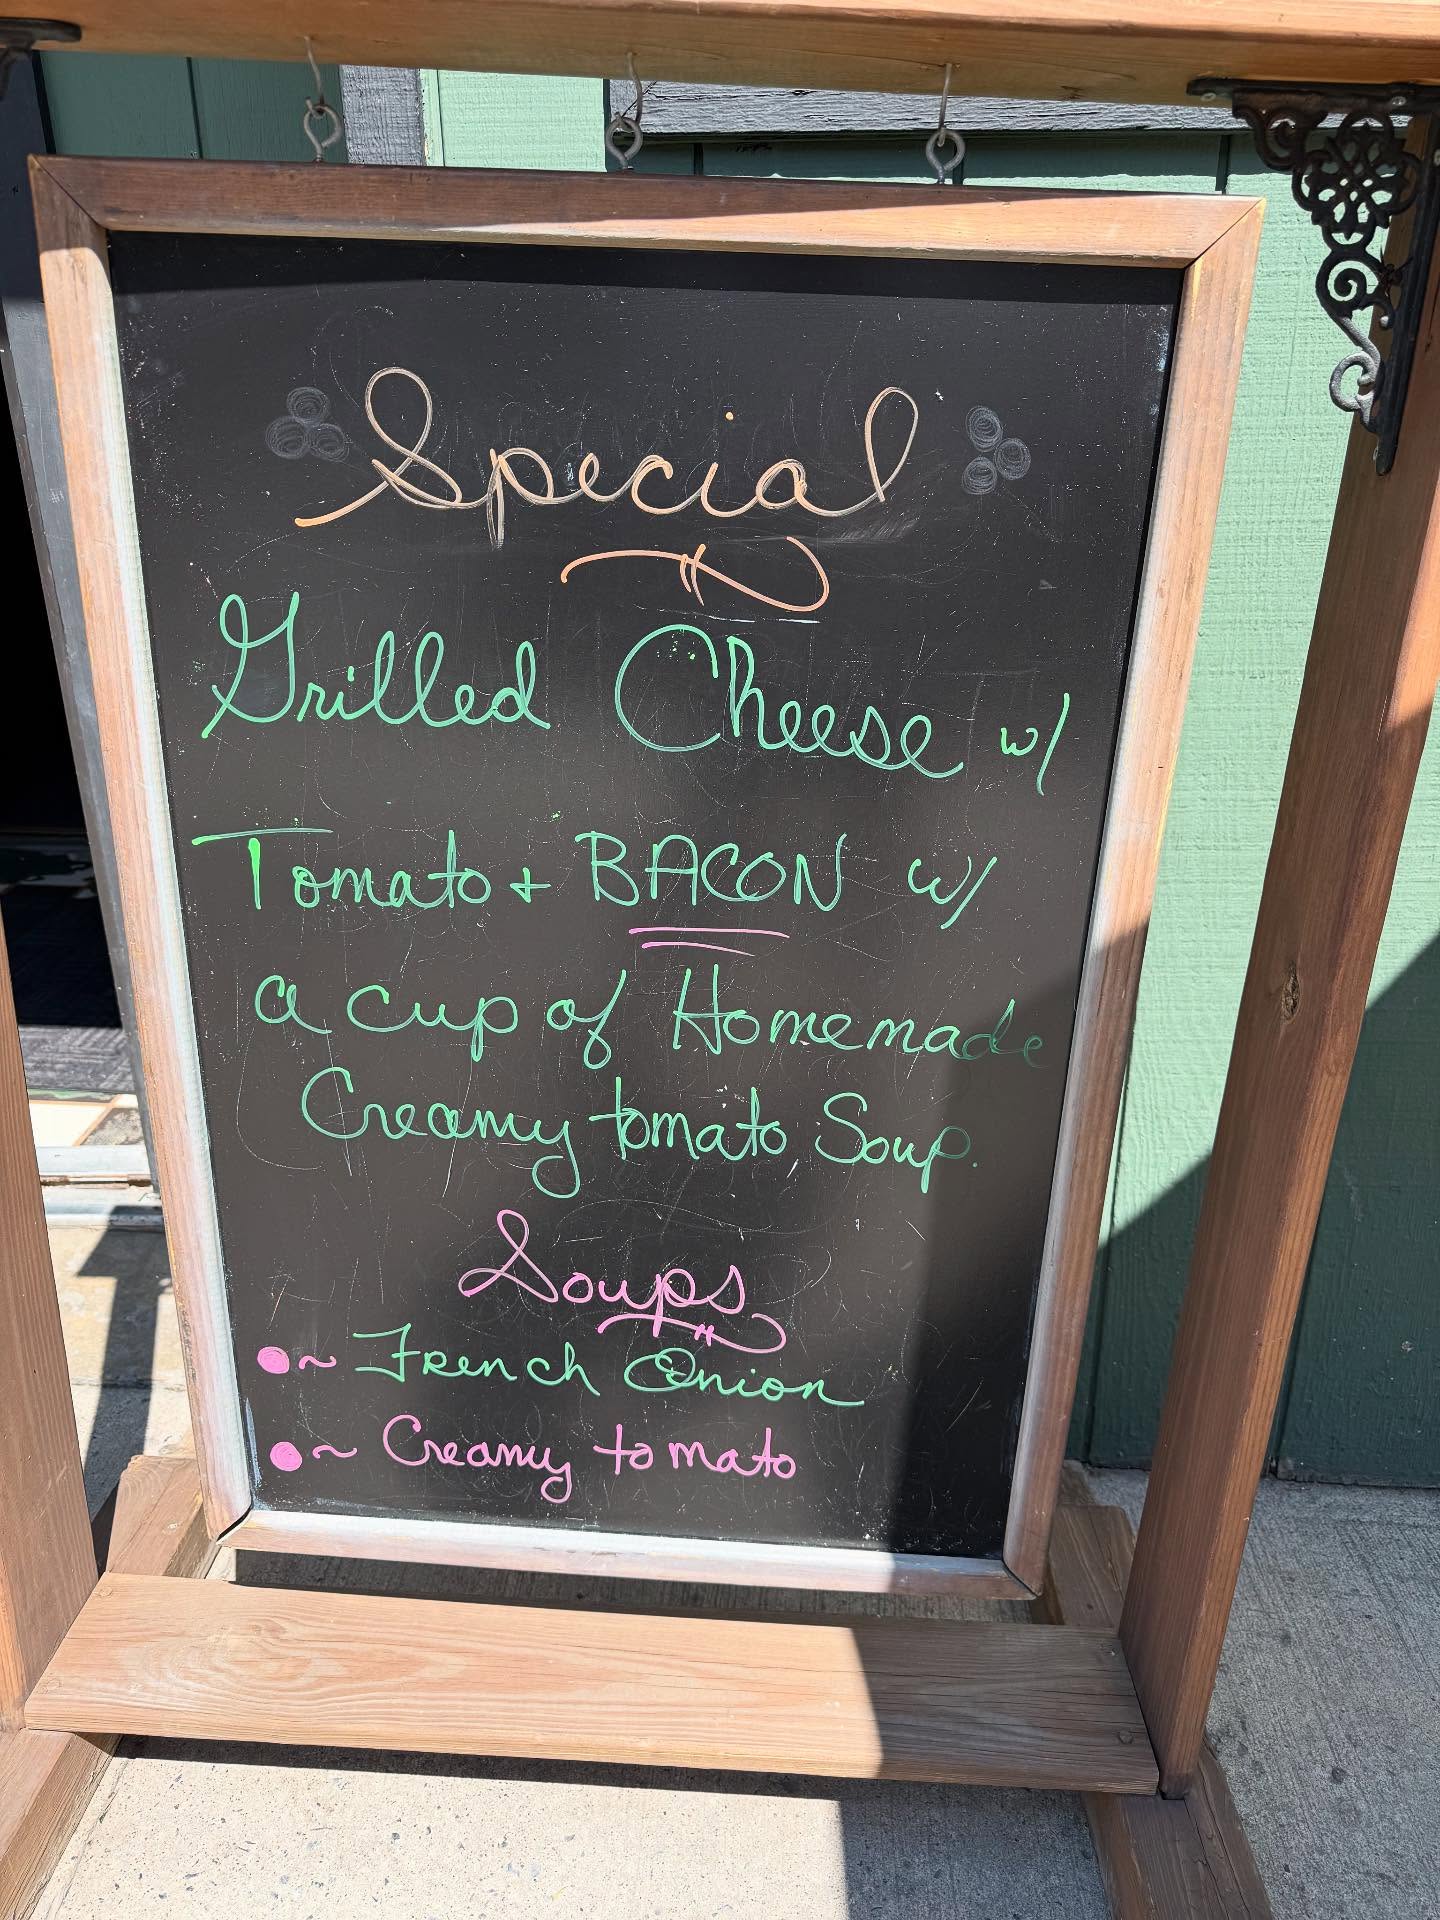 Special
Grilled Cheese w/
Tomato + BACON w/
a cup of Homemade
Creamy tomato Soup.
Soups
~ French Onion
~ Creamy tomato